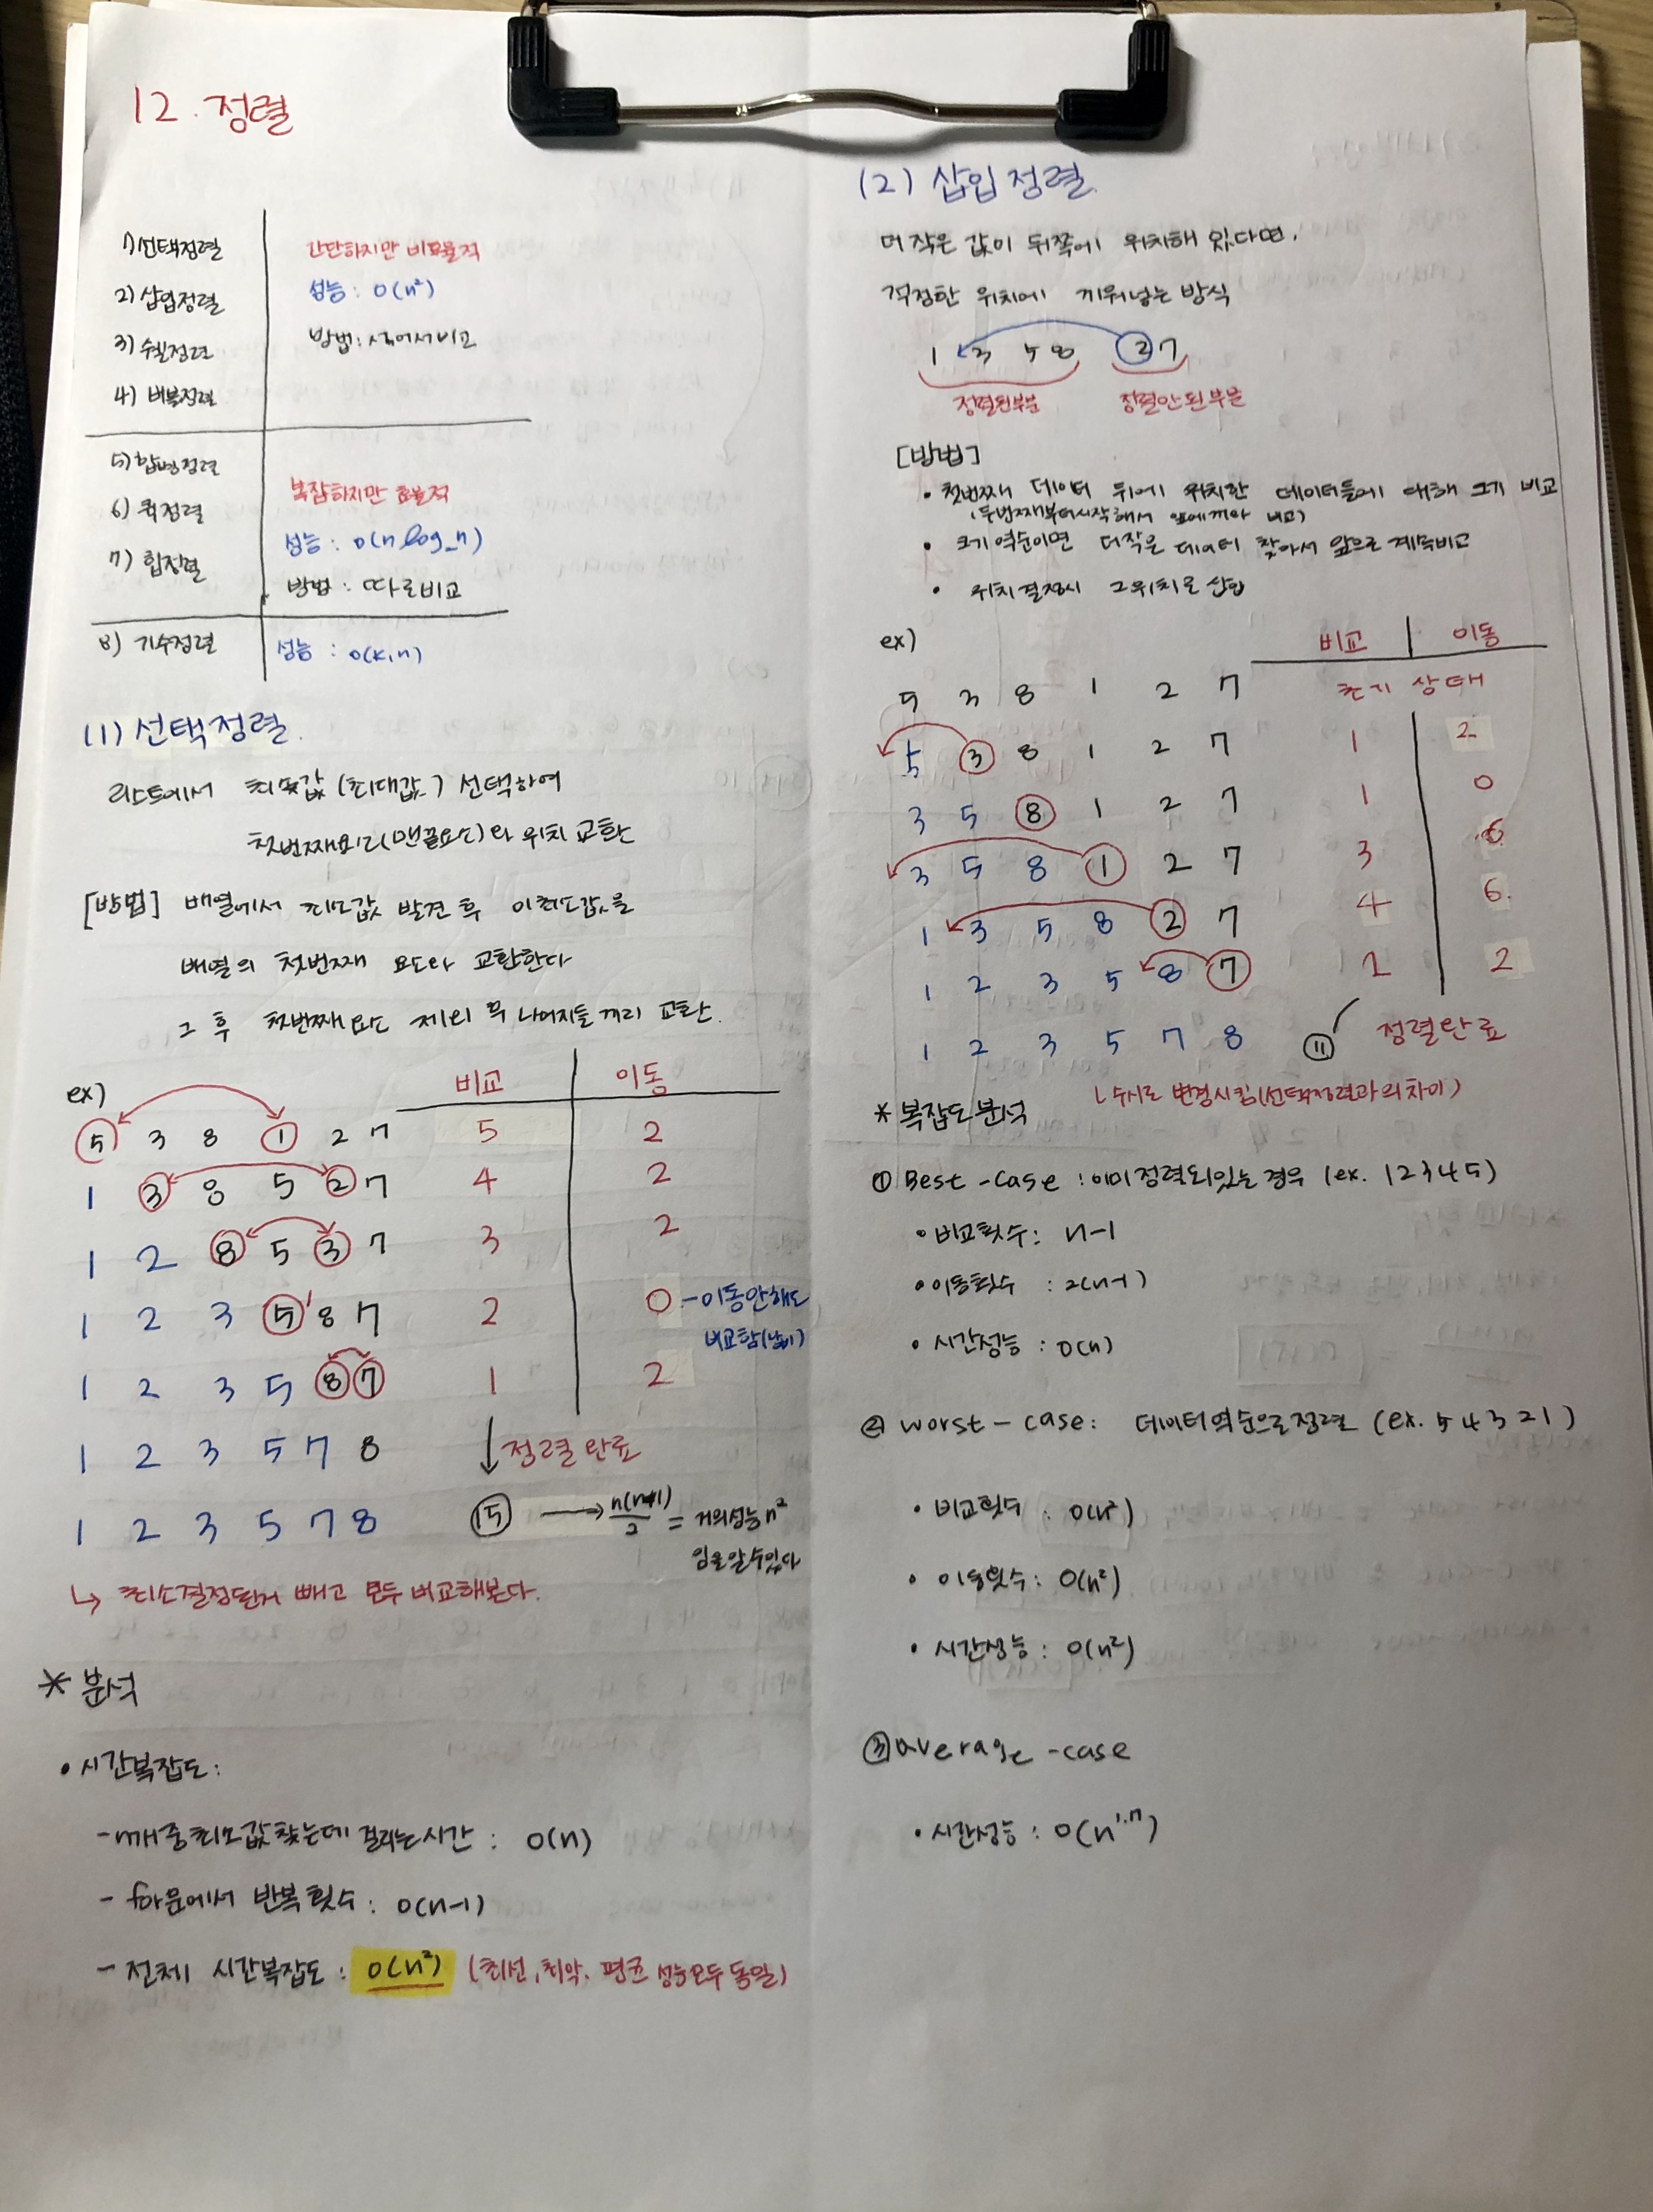 12. 정렬
1) 선택정렬
2) 삽입정렬
3) 쉘정렬
4) 버블정렬
간단하지만 비효율적
성능 : O(n²)
방법 : 섞어서비교
5) 합병정렬
6) 퀵정렬
7) 힙정렬
복잡하지만 효율적
성능 : O(n log_n)
방법 : 따로비교
8) 기수정렬
성능 : O(k,n)
(1) 선택정렬.
리스트에서 최솟값(최대값) 선택하여
첫번째요소(맨끝요소)와 위치 교환
[방법] 배열에서 최소값 발견 후 이최소값을
배열의 첫번째 요소와 교환한다
그 후 첫번째요소 제외 후 나머지들끼리 교환.
ex)
비교 이동
5 3 8 1 2 7 5 2
1 3 8 5 2 7 4 2
1 2 8 5 3 7 3 2
1 2 3 5 8 7 2 0 -이동안해도
비교함(낭비)
1 2 3 5 8 7 1 2
1 2 3 5 7 8 ↓ 정렬완료
1 2 3 5 7 8 ⑮ → n(n-1)/2 = 거의성능 n²
임을알수있다
↳ 최소결정된거 빼고 모두 비교해본다.
* 분석
• 시간복잡도:
- 매중최소값찾는데 걸리는시간 : O(n)
- for문에서 반복횟수 : O(n-1)
- 전체 시간복잡도 : O(n²) (최선, 최악, 평균 성능모두동일)
(2) 삽입정렬.
더 작은 값이 뒤쪽에 위치해 있다면,
적정한 위치에 끼워넣는 방식
1 3 5 8 2 7
정렬된부분 정렬안된부분
[방법]
• 첫번째 데이터 뒤에 위치한 데이터들에 대해 크기 비교
(두번째부터시작해서 앞에꺼와 비교)
• 크기 역순이면 더작은 데이터 찾아서 앞으로 계속비교
• 위치결정시 그위치로 삽입
ex)
비교 이동
5 3 8 1 2 7 초기 상태
5 3 8 1 2 7 1 2
3 5 8 1 2 7 1 0
3 5 8 1 2 7 3 6
1 3 5 8 2 7 4 6
1 2 3 5 8 7 2 2
1 2 3 5 7 8 ⑪ 정렬완료
↳ 수시로 변경시킴(선택정렬과의차이)
* 복잡도분석
① Best-case : 이미 정렬되있는 경우 (ex. 12345)
• 비교횟수 : n-1
• 이동횟수 : 2(n-1)
• 시간성능 : O(n)
② worst-case : 데이터역순으로정렬 (ex. 54321)
• 비교횟수 : O(n²)
• 이동횟수 : O(n²)
• 시간성능 : O(n²)
③ average-case
• 시간성능 : O(n^1.7)